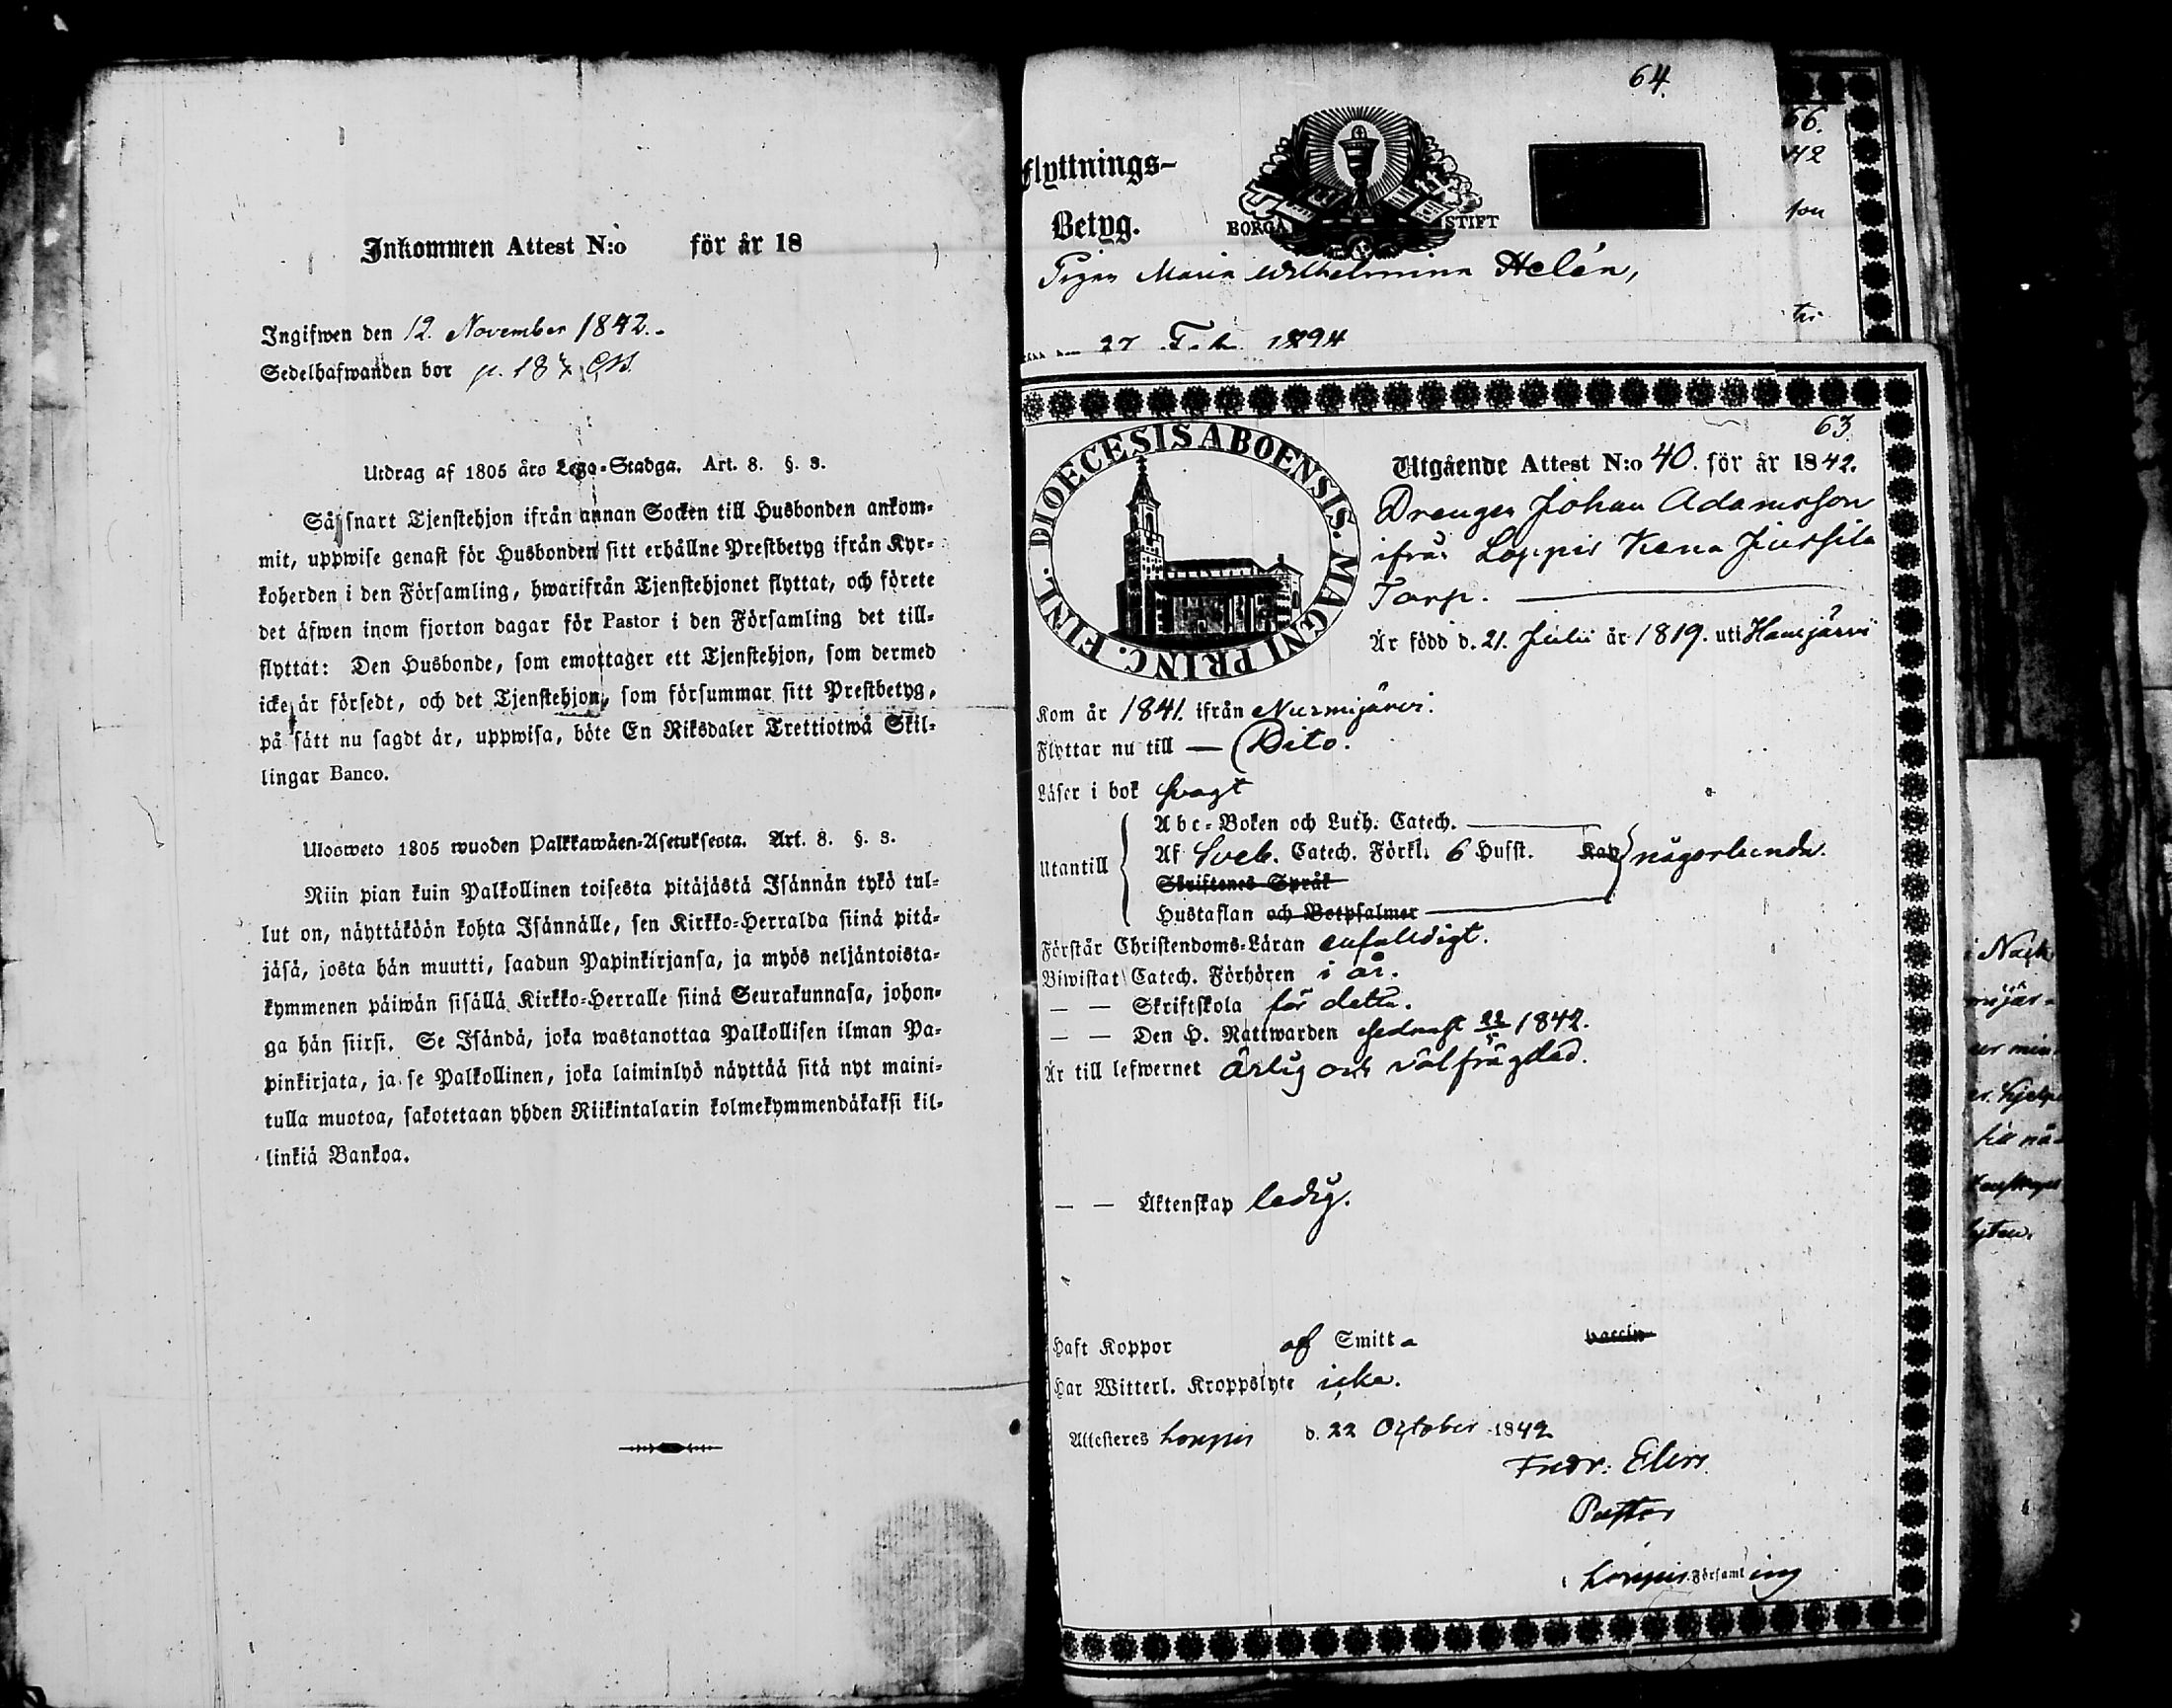 Inkommen Attest N:o för år 18
Ingifwen den 12. November 1842.
Sedelhafwanden bor p. 187
Utdrag af 1805 års Lego-Stadga. Art. 8. §. 3.
Så snart Tjenstehjon ifrån annan Socken till Husbonden ankom-
mit, uppwise genast för Husbonden sitt erhållne Prestbetyg ifrån Kyr-
koherden i den Församling, hwarifrån Tjenstehjonet flyttat, och förete
det äfwen inom fjorton dagar för Pastor i den Församling det till-
flyttat: Den Husbonde, som emottager ett Tjenstehjon, som dermed
icke är försedt, och det Tjenstehjon, som försummar sitt Prestbetyg,
på sätt nu sagdt är, uppwisa, böte En Riksdaler Trettiotwå Skil-
lingar Banco.
Ulosweto 1805 wuoden Palkkawäen-Asetuksesta. Art. 8. §. 3.
Niin pian kuin Palkollinen toisesta pitäjästä Isännän tykö tul-
lut on, näyttäköön kohta Isännälle, sen Kirkko-Herralda siinä pitä-
jäsä, josta hän muutti, saadun Papinkirjansa, ja myös neljäntoista-
kymmenen päiwän sisällä Kirkko-Herralle siinä Seurakunnasa, johon-
ga hän siirsi. Se Isändä, joka wastanottaa Palkollisen ilman Pa-
pinkirjata, ja se Palkollinen, joka laiminlyö näyttää sitä nyt maini-
tulla muotoa, sakotetaan yhden Riikintalarin kolmekymmendäkaksi kil-
linkiä Bankoa.
64.
Flyttnings-
Betyg.
BORGÅ STIFT
Pigan Maria Wilhelmina Helén,
27 Feb. 1894
63.
DIOECESIS ABOENSIS. MAGNI PRINC. FINL.
Utgående Attest N:o 40. för år 1842.
Drengen Johan Adamsson
ifrån Loppis Jussila
Torp.
Är född d. 21. Julii år 1819. uti Hausjärvi
Kom år 1841. ifrån Nurmijärvi.
Flyttar nu till — Dito.
Läser i bok svagt
Utantill
Abc-Boken och Luth. Catech.
Af Sveb. Catech. Förkl. 6 Hufst. Kap någorlunda.
Skriftenes Språk
Hustaflan och Botpsalmer
Förstår Christendoms-Läran enfalldigt.
Biwistat Catech. Förhören i år.
— — Skriftskola för detta.
— — Den H. Nattwarden sednast 22/5 1842.
Är till lefwernet ärlig och välfrägdad.
— — Äktenskap ledig.
Haft Koppor af Smitta vaccin
Har Witterl. Kroppslyte icke.
Attesteres Loppis d. 22 October 1842
Fredr: Elers
Pastor
i Loppis Församling
66.
42